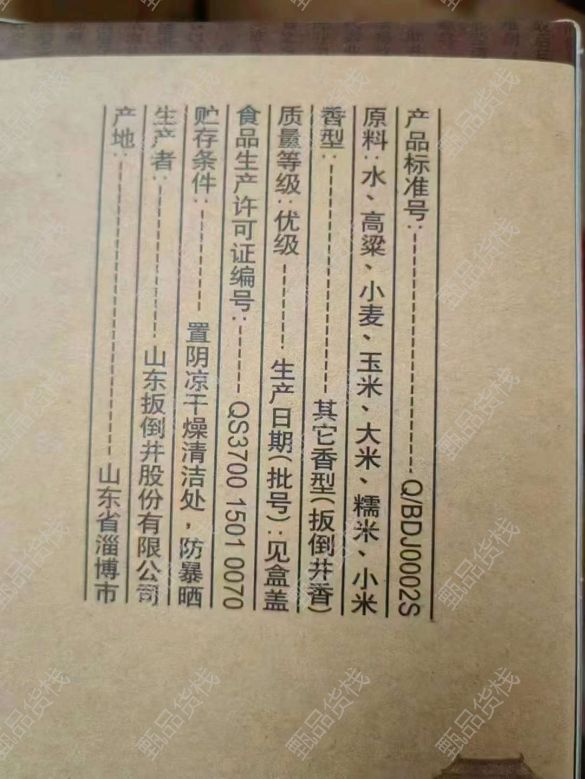 产品标准号：------------Q/BDJ0002S
原料：水、高粱、小麦、玉米、大米、糯米、小米
香型：------------其它香型(扳倒井香)
质量等级：优级------------生产日期(批号)：见盒盖
食品生产许可证编号：------------QS3700 1501 0070
贮存条件：------------置阴凉干燥清洁处，防暴晒
生产者：------------山东扳倒井股份有限公司
产地：------------山东省淄博市
甄品货栈